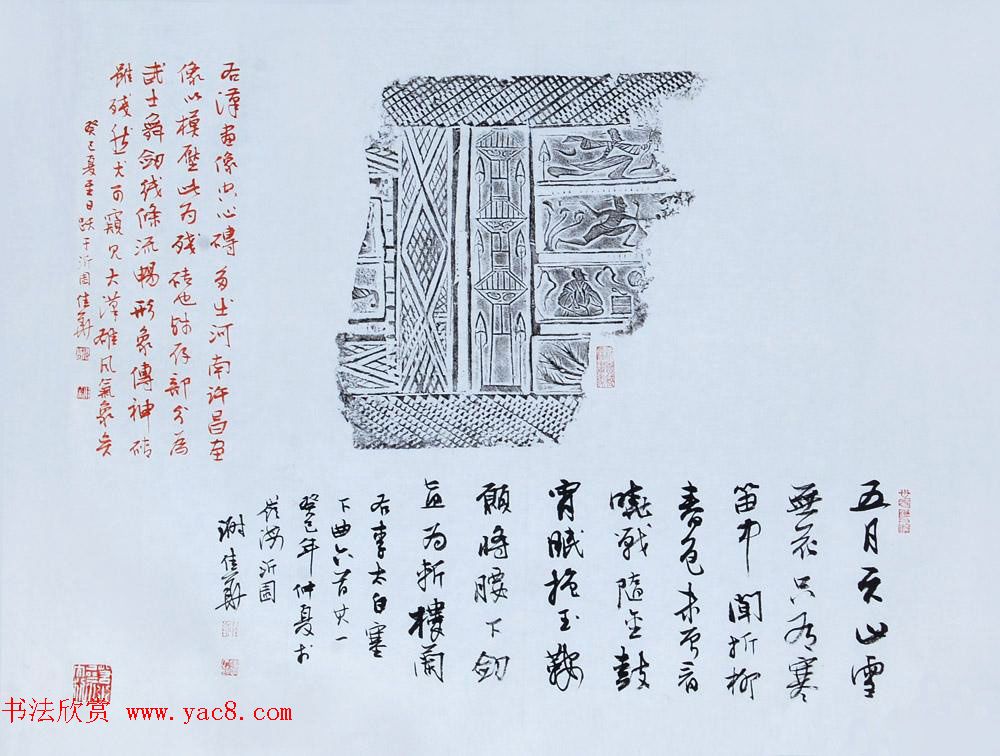 右漢畫像空心磚多出河南許昌畫
像以模壓此为殘砖也所存部分為
武士舞劍线條流暢形象傳神砖
雖殘然尤可窺見大漢雄风氣象矣
癸巳夏至日跋于沂園佳華
五月天山雪
無花只有寒
笛中聞折柳
春色未曾看
曉戰隨金鼓
宵眠抱玉鞍
願將腰下劍
直为斬樓蘭
右李太白塞
下曲六首其一
癸巳年仲夏於
嶺海沂園
謝佳華
书法欣赏 www.yac8.com